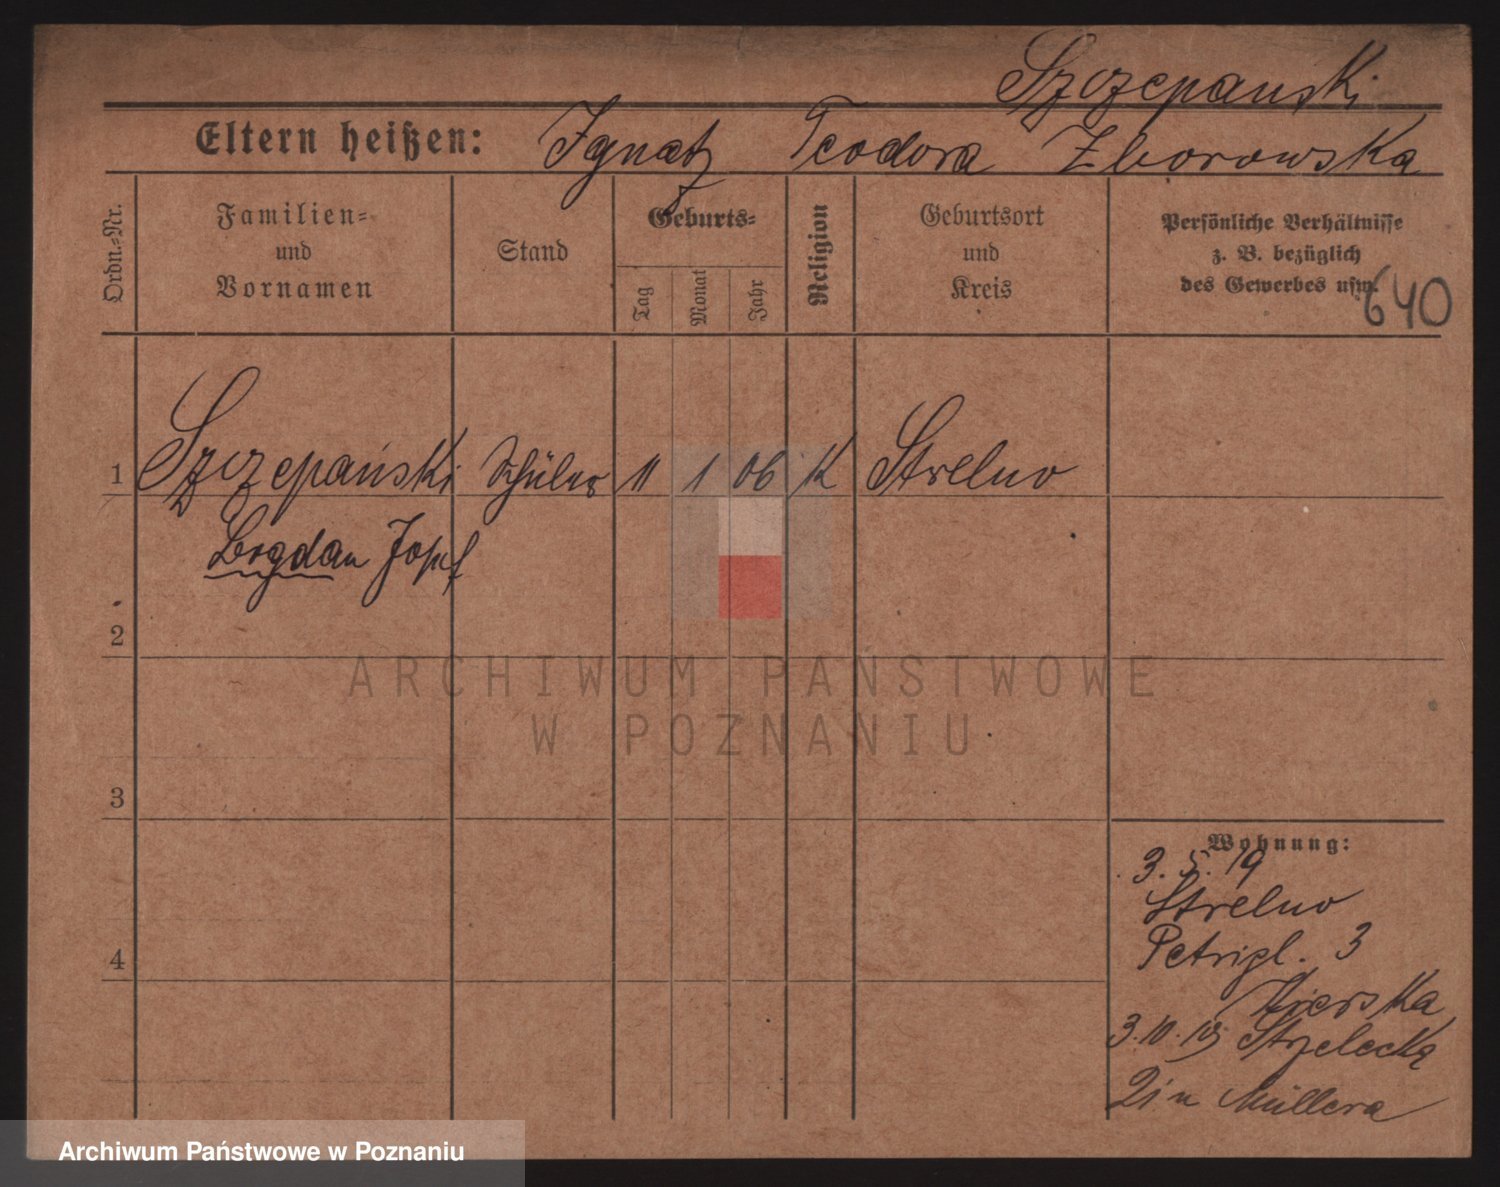 Szczepanski
Eltern heißen: Ignatz Teodora Zborowska
Ordn.-Nr.
Familien-
und
Vornamen
Stand
Geburts-
Tag
Monat
Jahr
Religion
Geburtsort
und
Kreis
Persönliche Verhältnisse
z. B. bezüglich
des Gewerbes usw.
640
1 Szczepański Schüler 11 1 06 K Strelno
Bogdan Josef
2
ARCHIWUM PAŃSTWOWE
W POZNANIU
3
Wohnung:
3. 5. 19
Strelno
Petrigl. 3
4
3.10.19 Strzelecka
21 u Müllera
Archiwum Państwowe w Poznaniu